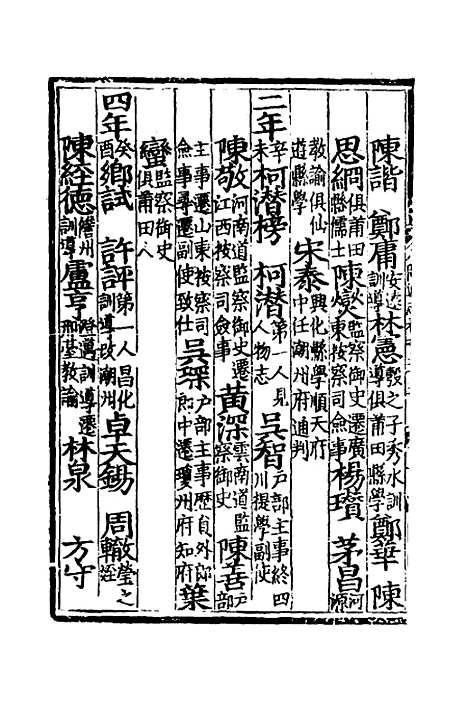 陳諧　鄭庸安遠訓導林憲之子秀水訓導俱莆田縣學鄭華　陳
思綱俱莆田縣儒士陳監察御史遷廣東按察司僉事楊瓚　茅昌河源
教諭俱仙遊縣學　宋泰興化縣學順天府中任潮州府通判
二年辛未柯潛榜　柯潛第一人見人物志　吳智戶部主事終四川提學副使
陳敬河南道監察御史遷江西按察司僉事　黃深雲南道監察御史　陳善戶部
主事遷山東按察司僉事尋遷副使致仕　吳琛戶部主事歷員外郎郎中遷瓊州府知府　葉
巒監察御史俱莆田人
四年癸酉鄉試　許評第一人昌化訓導改潮州　卓天錫　周轍瑩之姪
陳經德儋州訓導盧亨澄邁訓導遷邢臺教諭　林泉　方守